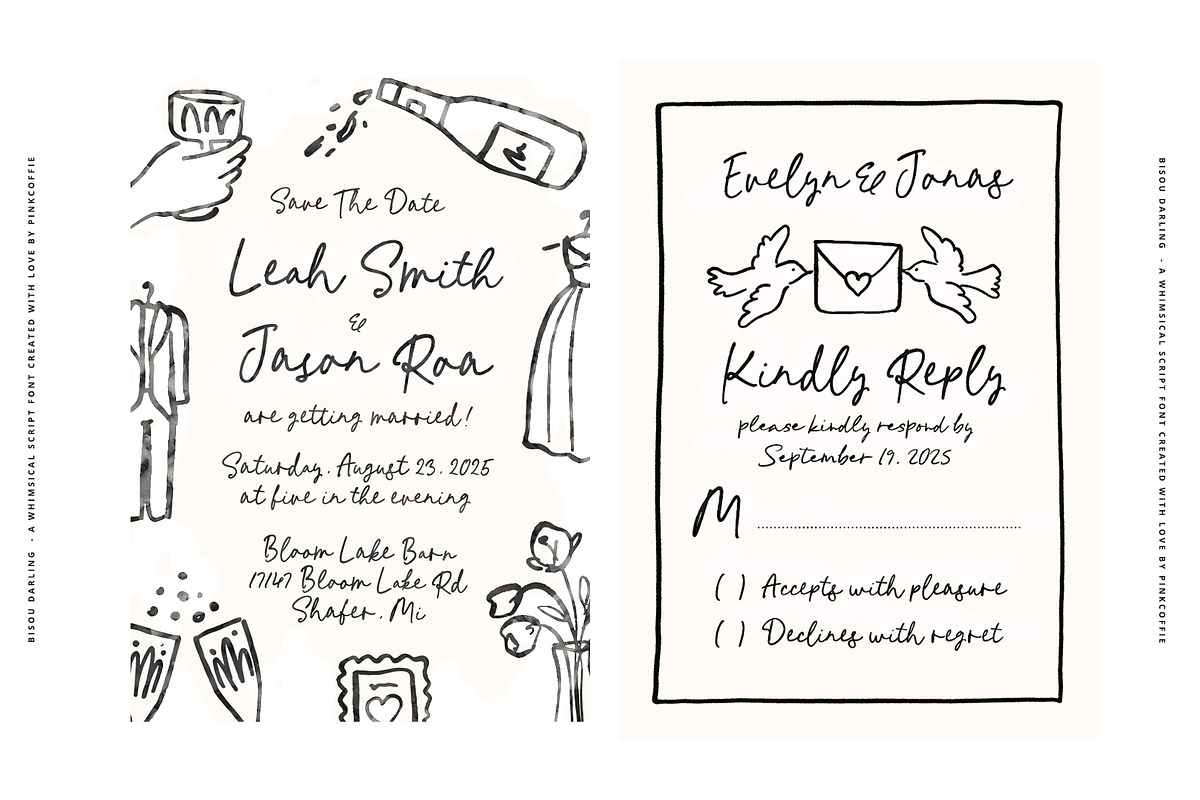 BISOU DARLING - A WHIMSICAL SCRIPT FONT CREATED WITH LOVE BY PINKCOFFIE
Save The Date
Leah Smith
&
Jason Roa
are getting married!
Saturday. August 23. 2025
at five in the evening
Bloom Lake Barn
17147 Bloom Lake Rd
Shafer. Mi
Evelyn & Jonas
Kindly Reply
please kindly respond by
September 19. 2025
M
( ) Accepts with pleasure
( ) Declines with regret
BISOU DARLING - A WHIMSICAL SCRIPT FONT CREATED WITH LOVE BY PINKCOFFIE